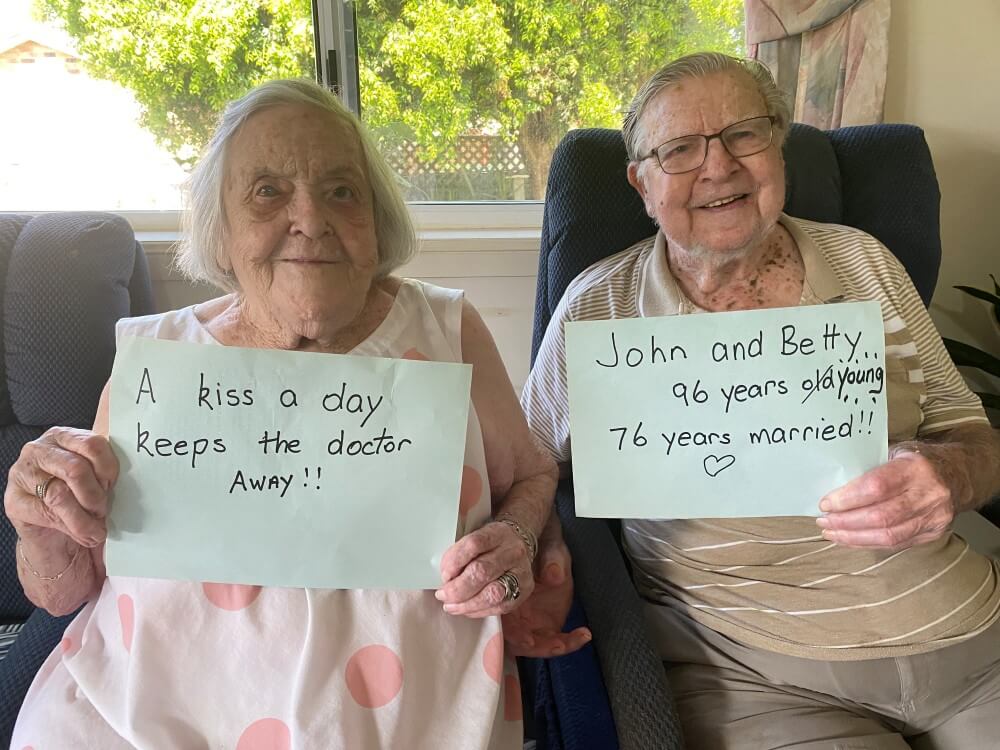 A kiss a day
keeps the doctor
AWAY!!
John and Betty..
96 years old young
76 years married!!